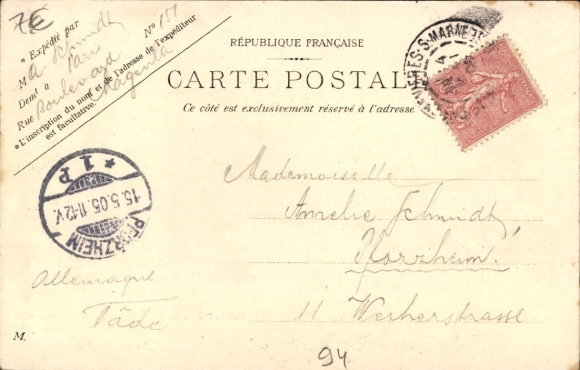 7€
* Expédié par
M A. Schmidt
Demt à Paris
Rue Boulevard Magenta
N° 151
* L'inscription du nom et de l'adresse de l'expéditeur
est facultative.
RÉPUBLIQUE FRANÇAISE
CARTE POSTALE
Ce côté est exclusivement réservé à l'adresse
S-MARNE
* 1 P
15.5.05.11-12V.
PFORZHEIM
Mademoiselle
Amelie Schmidt,
Pforzheim.
11 Weiherstrasse
Allemagne
Bade
M.
94